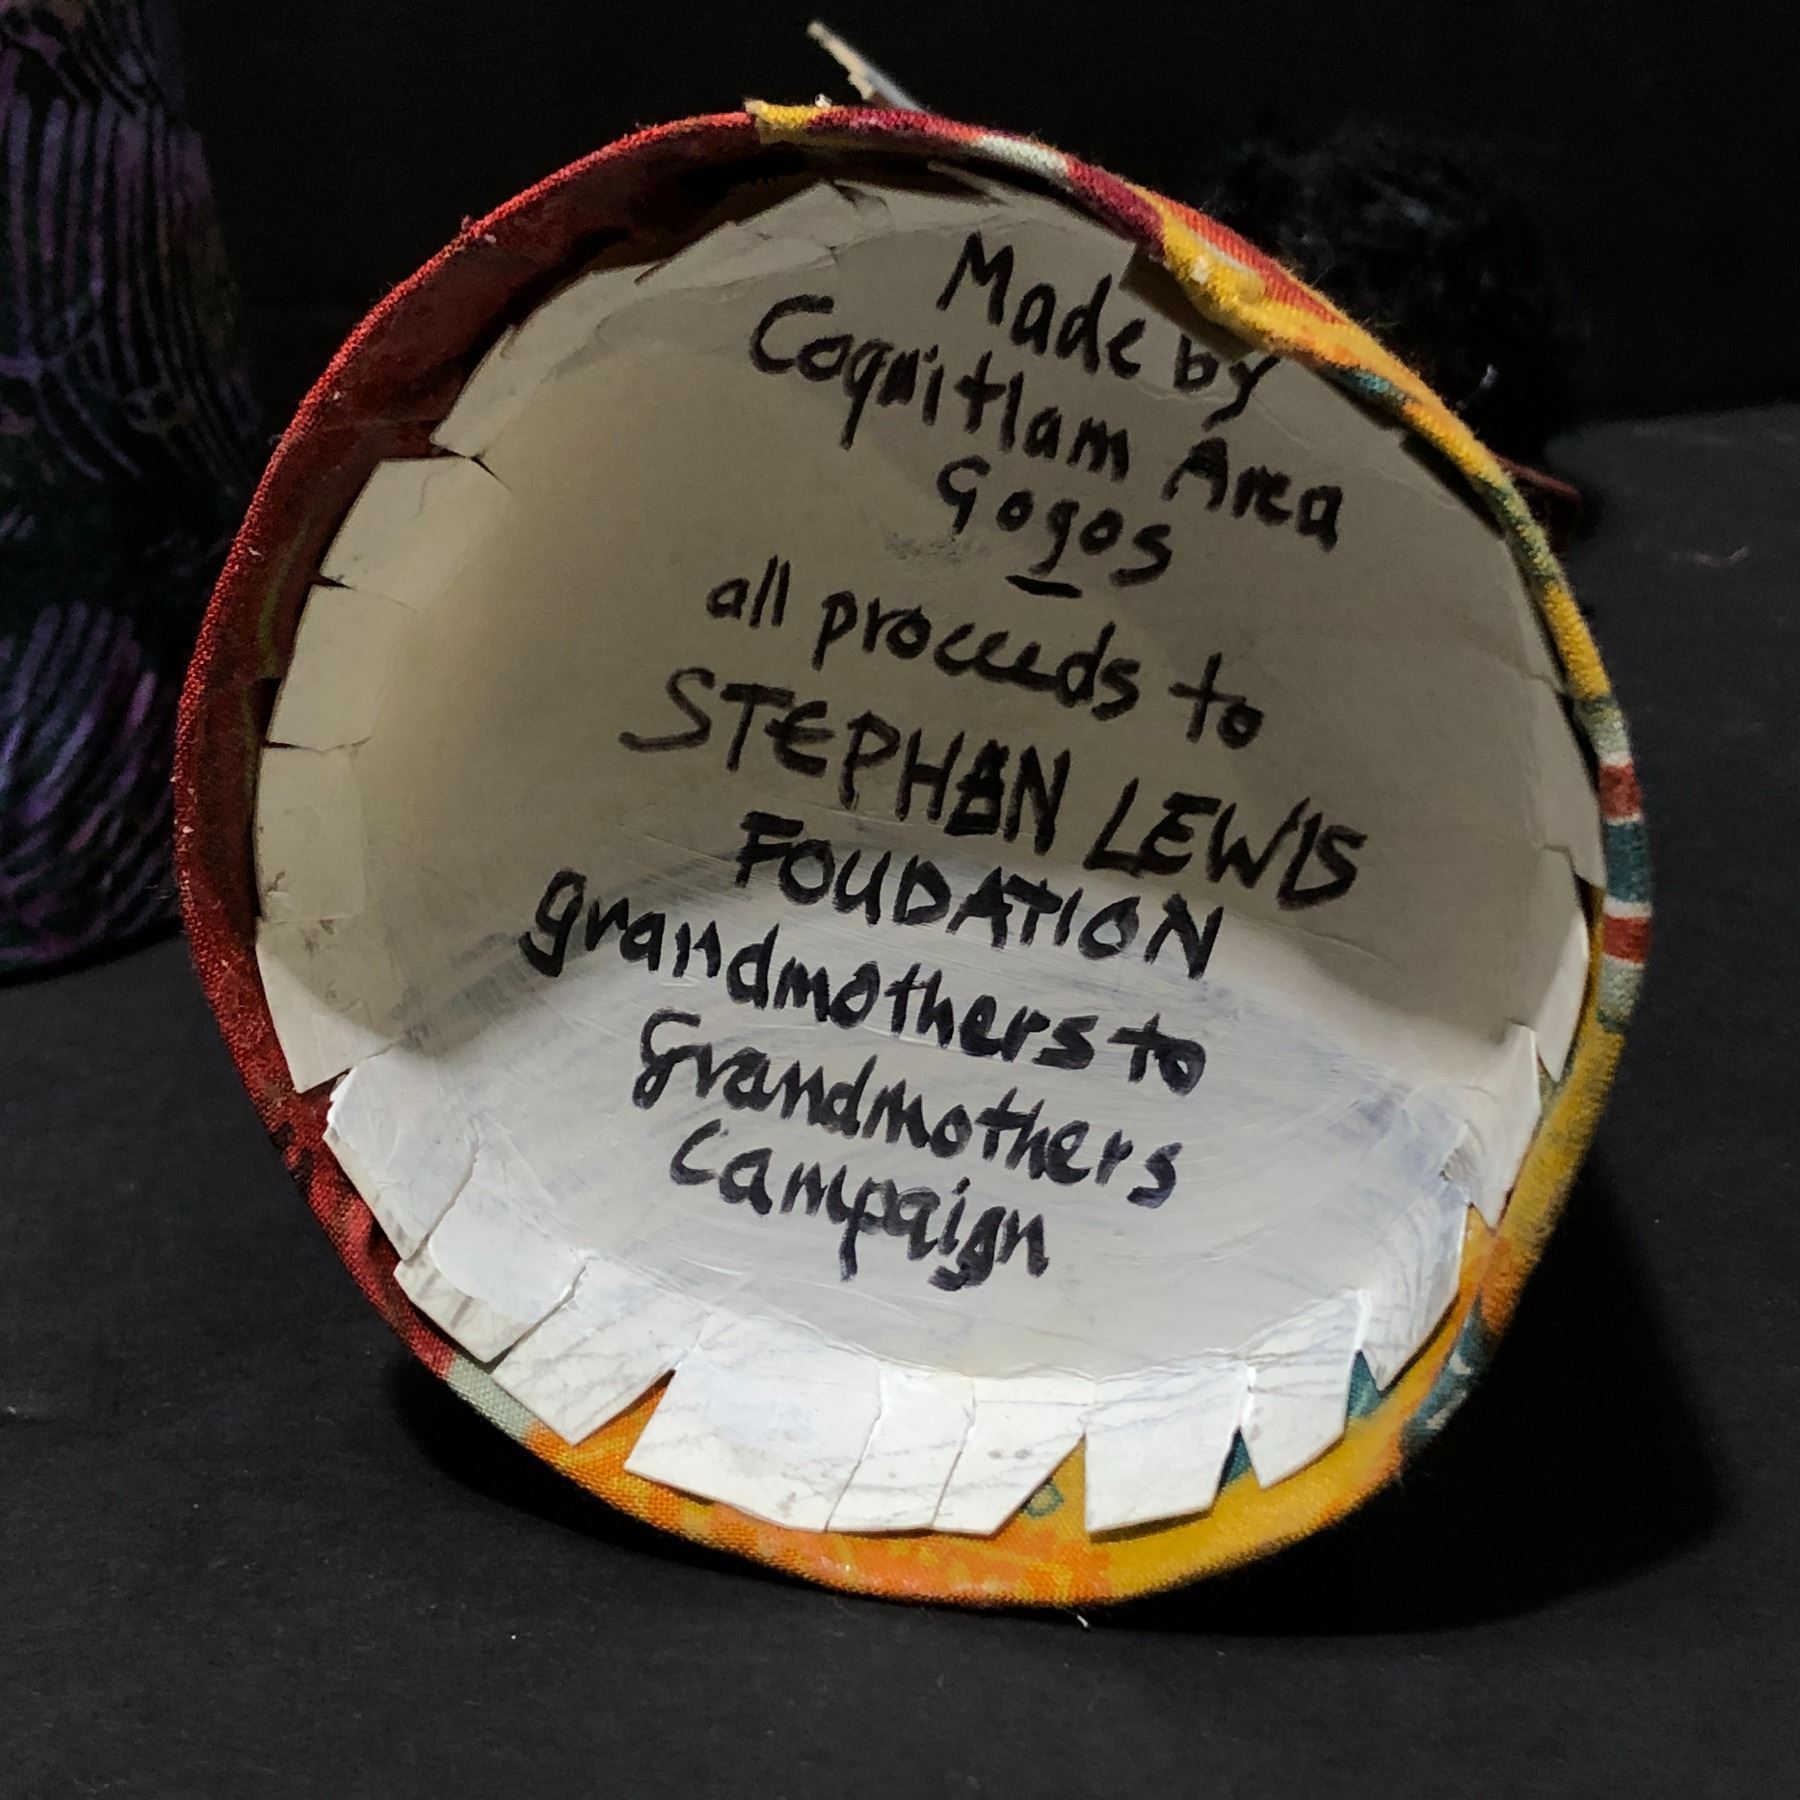 Made by
Coquitlam Area
Gogos
all proceeds to
STEPHAN LEWIS
FOUDATION
grandmothers to
Grandmothers
Campaign